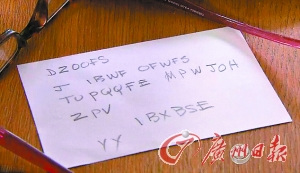 DZOOFS
J IBWF OFWFS
TUPQQFE MPWJOH
ZPV
IBXBSE
YY
廣州日報